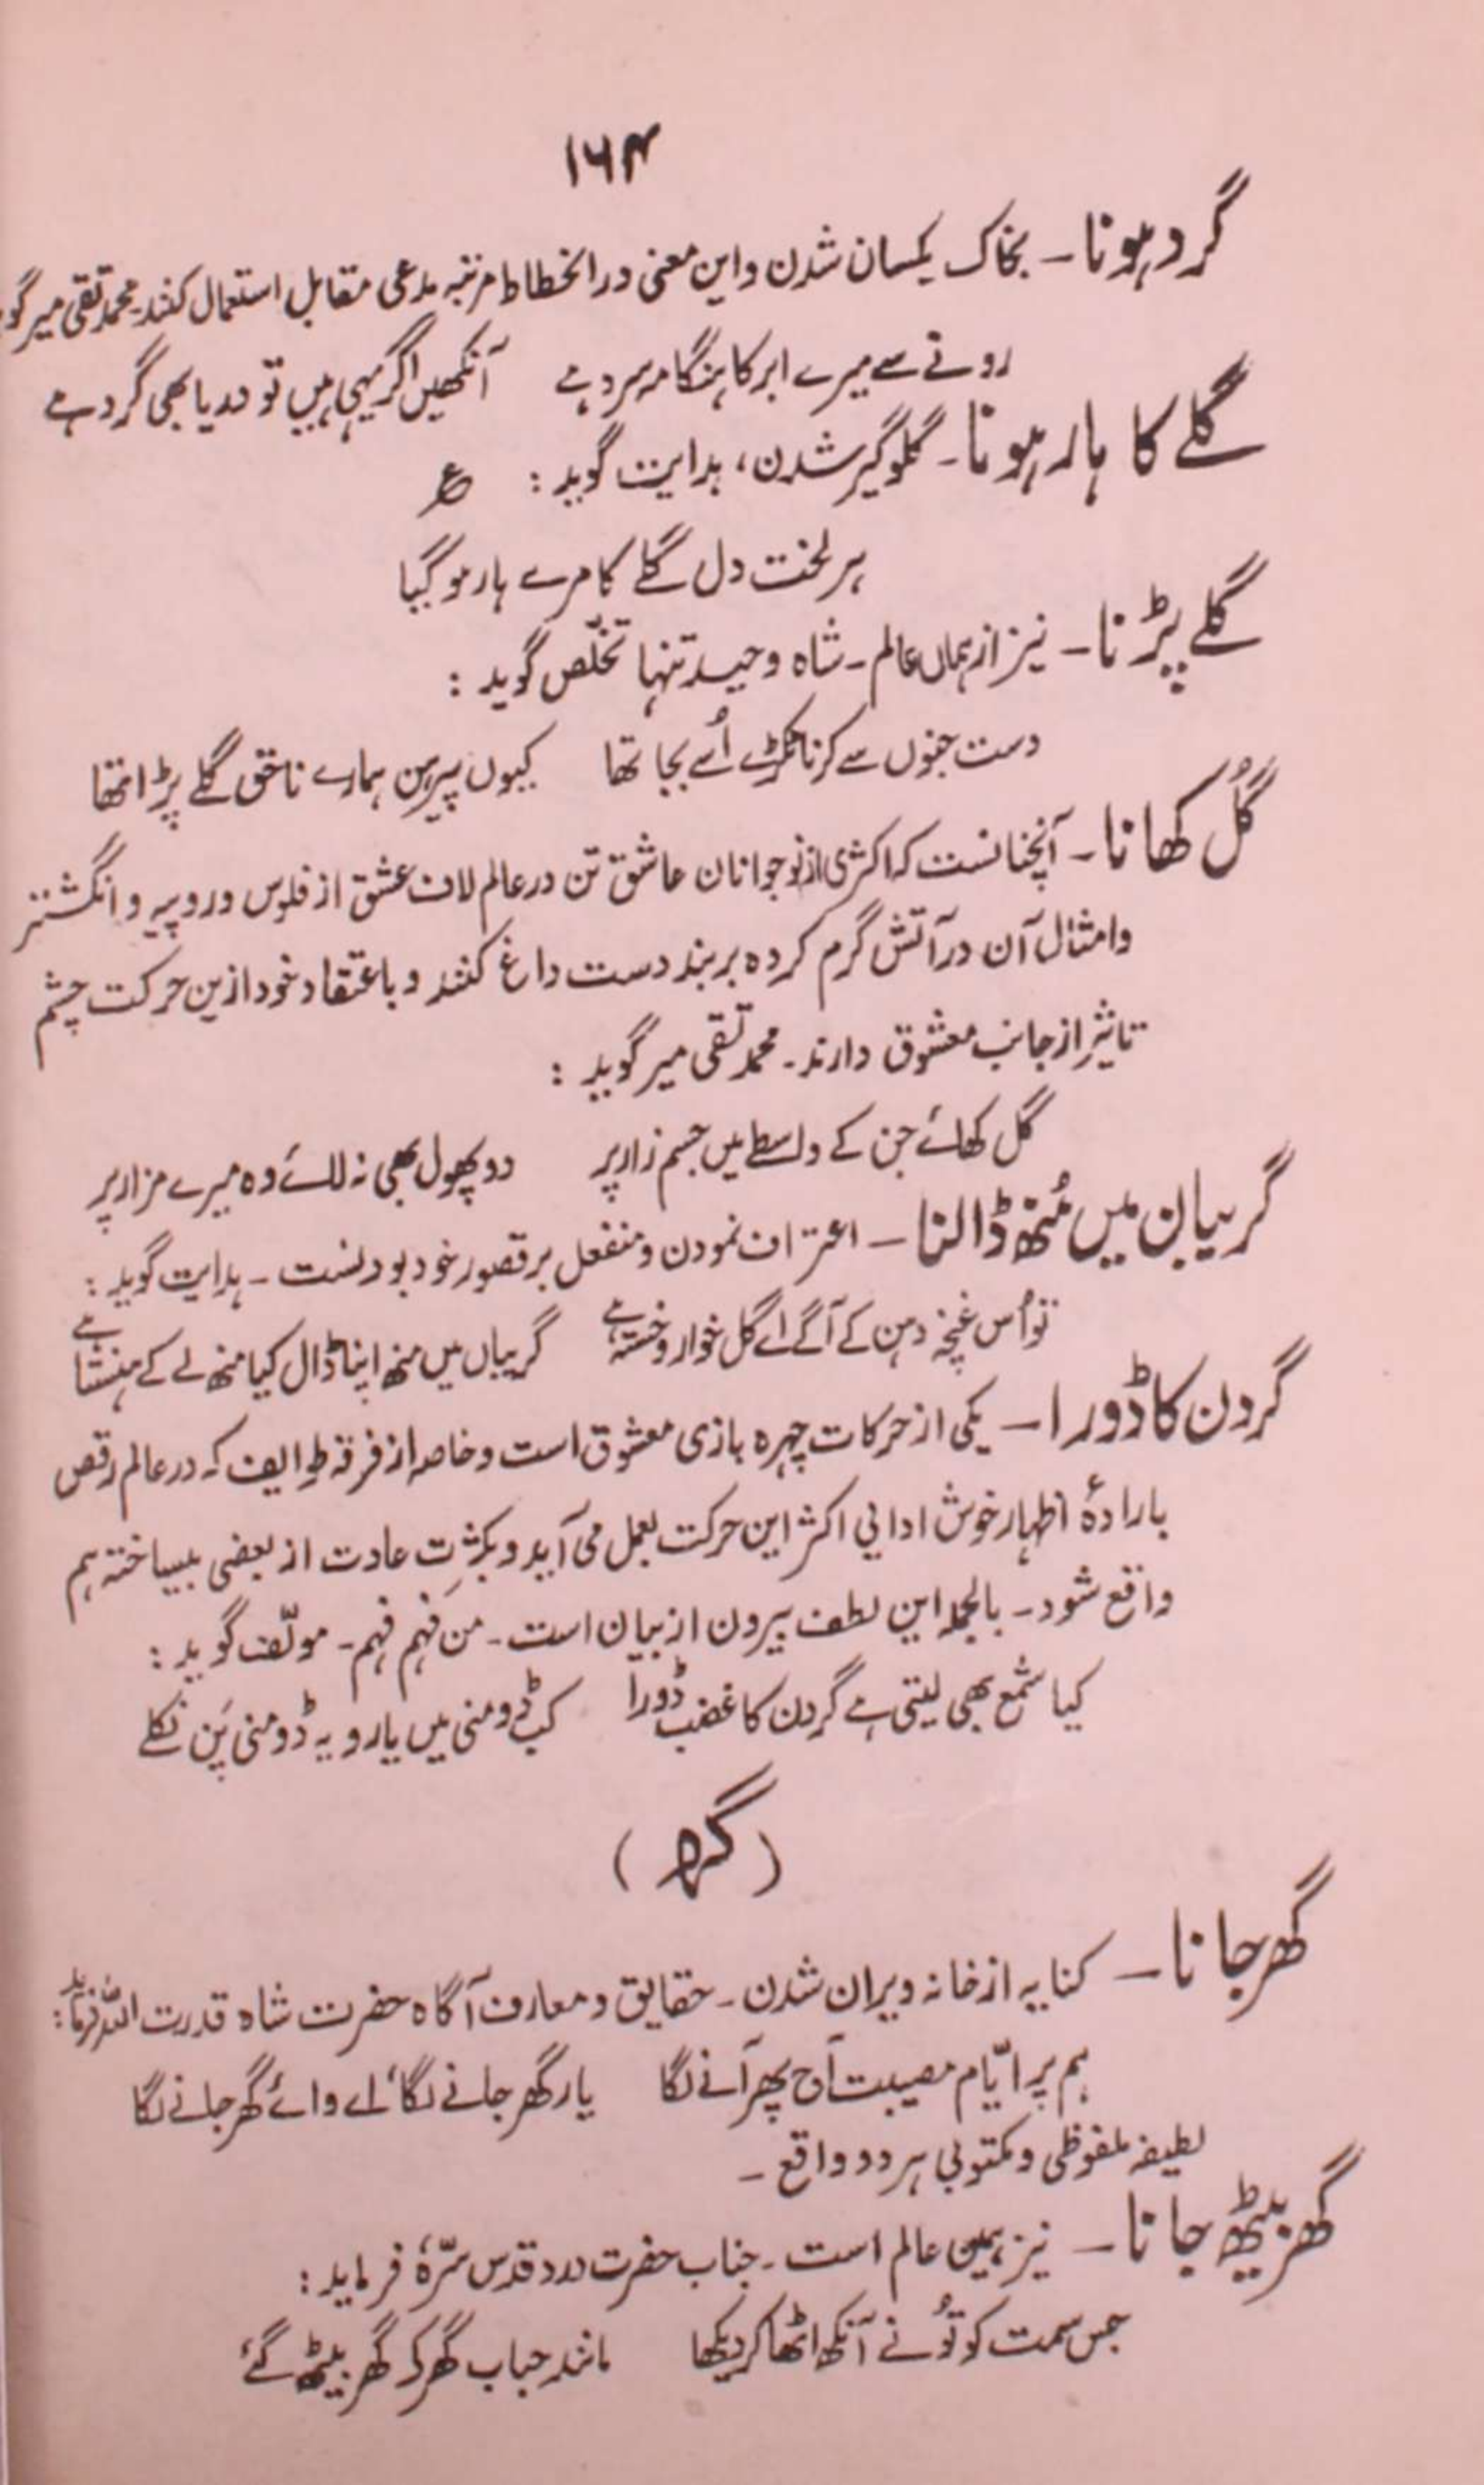 ۱۶۴
گرد ہونا۔ بخاک یکسان شدن و این معنی در انحطاط مرتبہ مدعی مقابل استعمال کنند۔ محمد تقی میر گو
رونے سے میرے ابر کا ہنگامہ سرد ہے آنکھیں اگر یہی ہیں تو دریا بھی گرد ہے
گلے کا ہار ہونا۔ گلوگیر شدن، ہدایت گوید : ع
ہر لخت دل گلے کا مرے ہار ہو گیا
گلے پڑنا۔ نیز از ہماں عالم۔ شاہ وحید تنہا تخلّص گوید :
دست جنوں سے کرنا ٹکڑے اُسے بجا تھا کیوں پیرہن ہمارے ناحق گلے پڑا تھا
گُل کھانا۔ آنچنانست کہ اکثری از نوجوانان عاشق تن در عالم لاف عشق از فلوس و روپیہ و انگشتر
و امثال آن در آتش گرم کردہ بر بند دست داغ کنند و باعتقاد خود ازین حرکت چشم
تاثیر از جانب معشوق دارند۔ محمد تقی میر گوید :
گل کھائے جن کے واسطے میں جسم زار پر دو پھول بھی نہ لائے وہ میرے مزار پر
گریبان میں مُنھ ڈالنا۔ اعتراف نمودن و منفعل بر قصور خود بودنست۔ ہدایت گوید :
تو اُس غنچہ دہن کے آگے اے گل خوار و خستہ ہے گریباں میں منھ اپنا ڈال کیا منھ لے کے ہنستا ہے
گردن کا ڈورا۔ یکی از حرکات چہرہ بازی معشوق است و خاصہ از فرقہ طوایف کہ در عالم رقص
بارادۂ اظہار خوش ادایی اکثر این حرکت بعمل می آید و بکثرتِ عادت از بعضی بیساختہ ہم
واقع شود۔ بالجملہ این لطف بیرون از بیان است۔ من فہم فہم۔ مولّف گوید :
کیا شمع بھی لیتی ہے گردن کا غضب ڈورا کب ڈومنی میں یارو یہ ڈومنی پَن نکلے
(گھ)
گھر جانا۔ کنایہ از خانہ ویران شدن۔ حقایق و معارف آگاہ حضرت شاہ قدرت اللہ فرماید :
ہم پر ایّام مصیبت آج پھر آنے لگا یار گھر جانے لگا، اے وائے گھر جانے لگا
لطیفہ ملفوظی و مکتوبی ہر دو واقع۔
گھر بیٹھ جانا۔ نیز ہمین عالم است۔ جناب حضرت درد قدس سرّہٗ فرماید :
جس سمت کو تُو نے آنکھ اٹھا کر دیکھا مانند حباب گھر کے گھر بیٹھ گئے